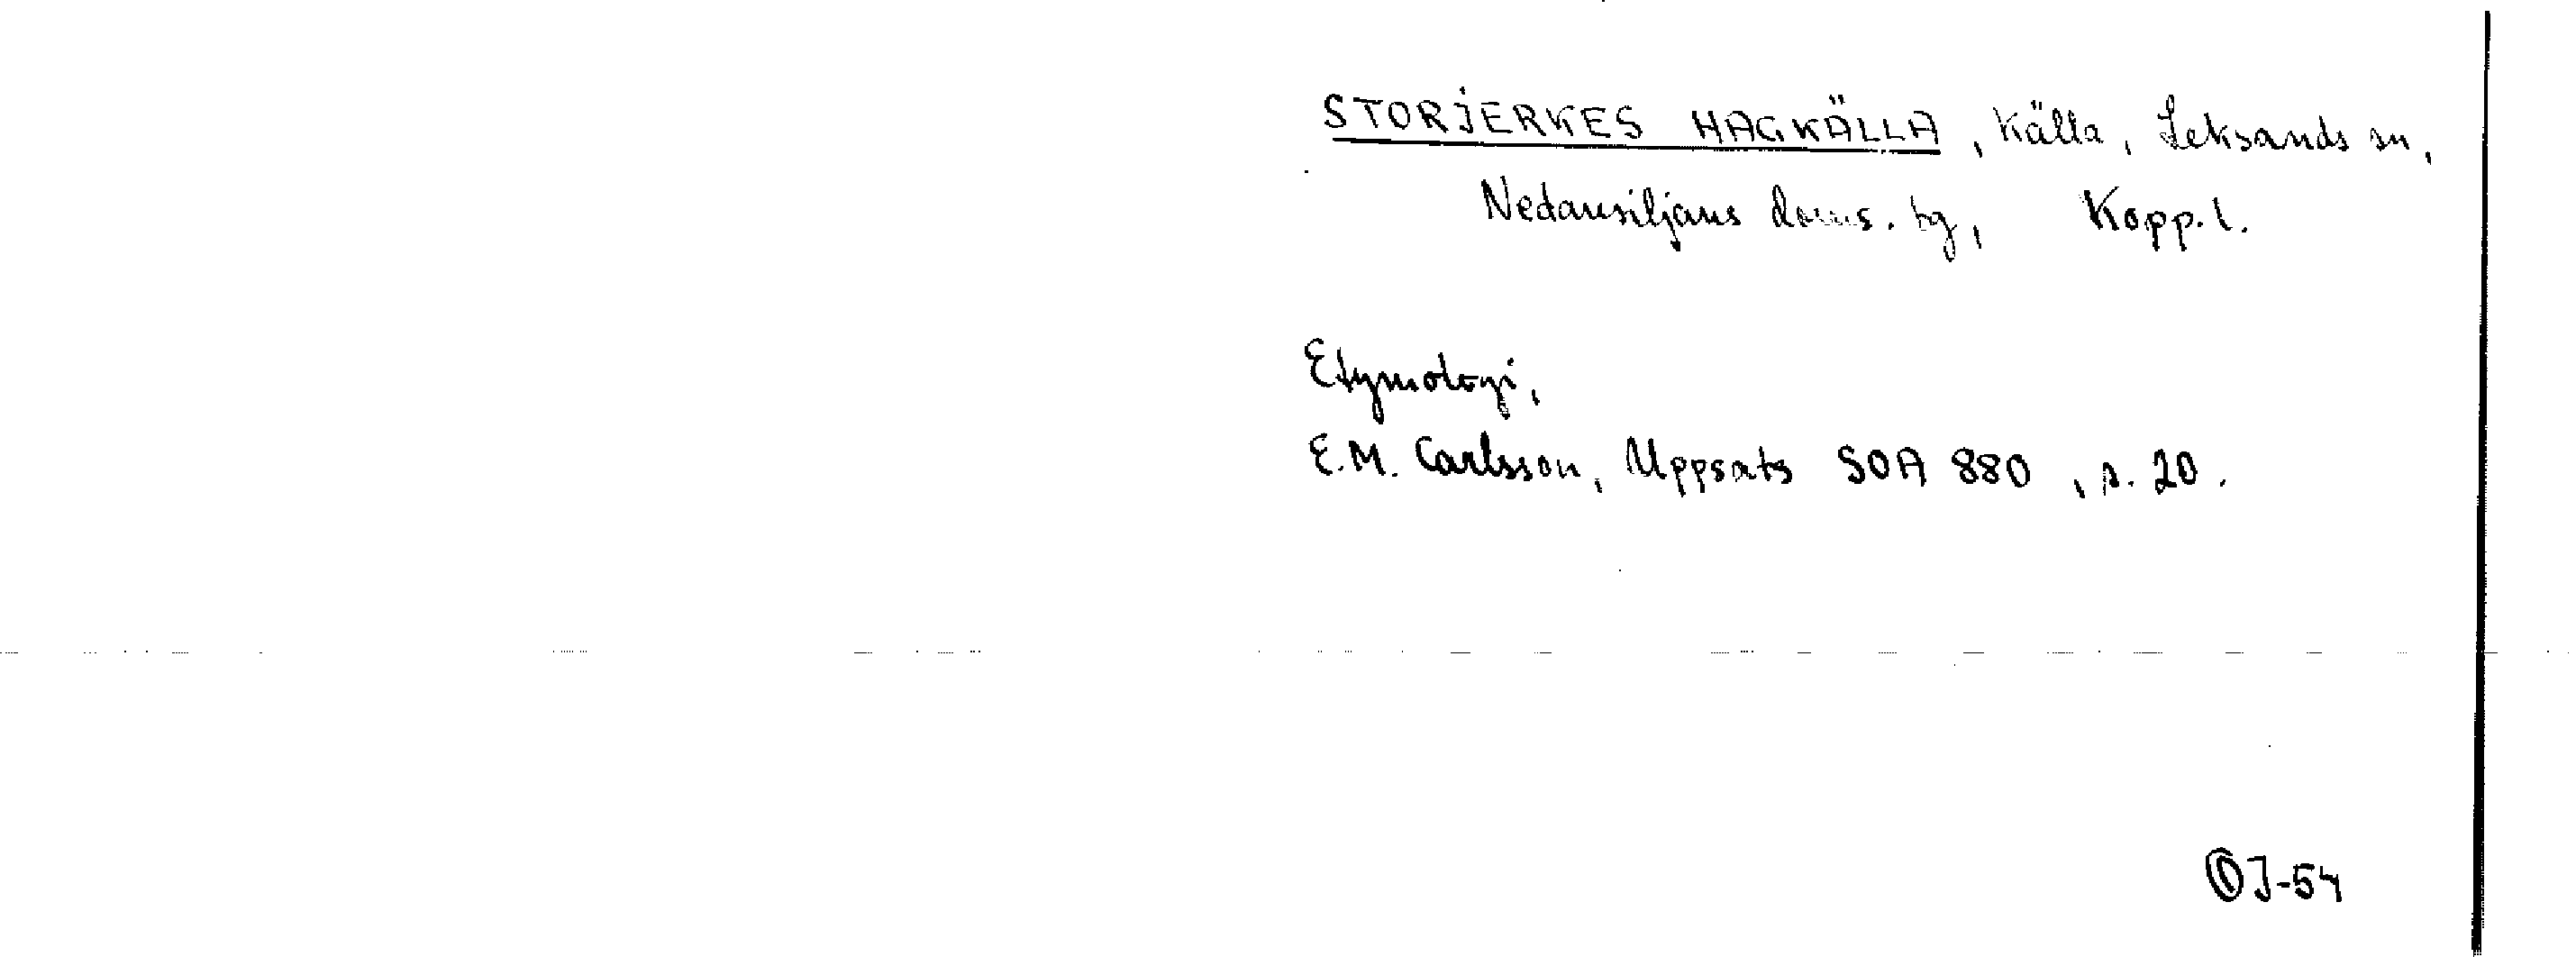 STORJERKES HAGKÄLLA, källa, Leksands sn,
Nedansiljans doms. tg, Kopp. l.
Etymologi,
E.M. Carlsson, Uppsats SOA 880, s. 20.
ÖJ-54